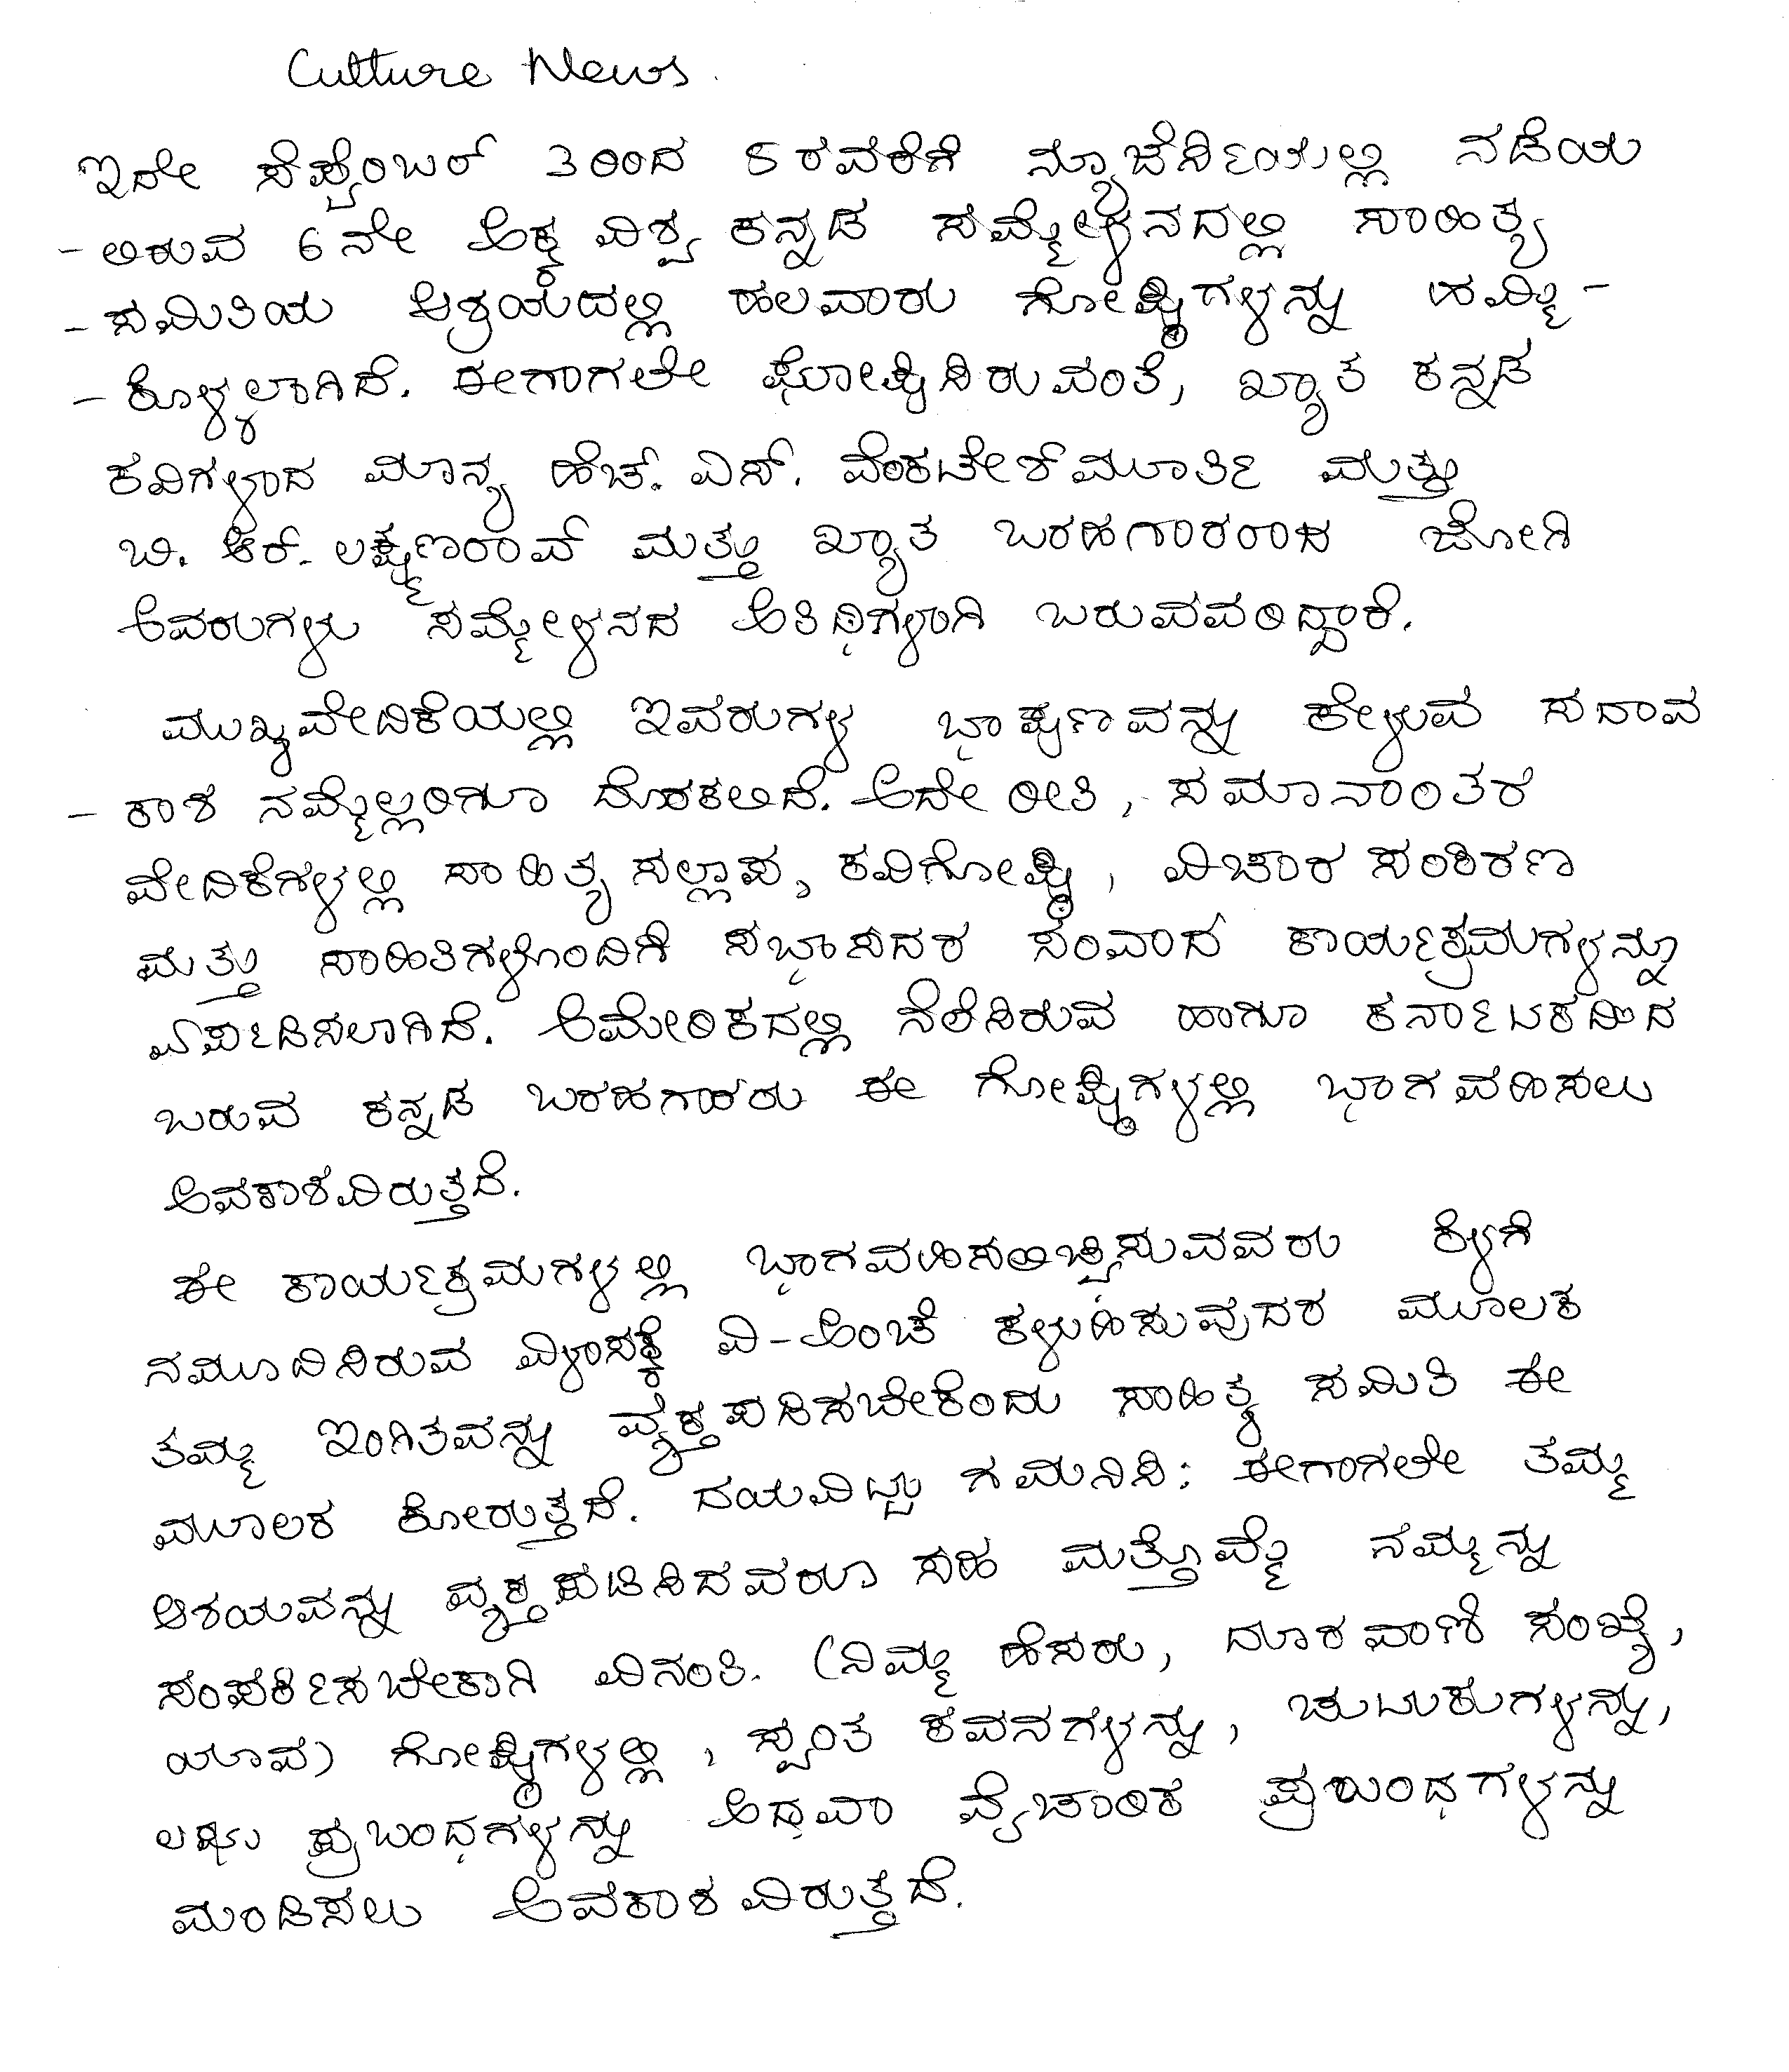 Culture News.
ಇದೇ ಸೆಪ್ಟೆಂಬರ್ 3ರಿಂದ 5ರವರೆಗೆ ನ್ಯೂಜೆರ್ಸಿಯಲ್ಲಿ ನಡೆಯ
-ಲಿರುವ 6ನೇ ಅಕ್ಕ ವಿಶ್ವ ಕನ್ನಡ ಸಮ್ಮೇಳನದಲ್ಲಿ ಸಾಹಿತ್ಯ
-ಸಮಿತಿಯ ಆಶ್ರಯದಲ್ಲಿ ಹಲವಾರು ಗೋಷ್ಠಿಗಳನ್ನು ಹಮ್ಮಿ-
-ಕೊಳ್ಳಲಾಗಿದೆ. ಈಗಾಗಲೇ ಘೋಷಿಸಿರುವಂತೆ, ಖ್ಯಾತ ಕನ್ನಡ
ಕವಿಗಳಾದ ಮಾನ್ಯ ಹೆಚ್. ಎಸ್. ವೆಂಕಟೇಶ್‌ಮೂರ್ತಿ ಮತ್ತು
ಬಿ. ಆರ್. ಲಕ್ಷ್ಮಣರಾವ್ ಮತ್ತು ಖ್ಯಾತ ಬರಹಗಾರರಾದ ಜೋಗಿ
ಅವರುಗಳು ಸಮ್ಮೇಳನದ ಅತಿಥಿಗಳಾಗಿ ಬರುವವರಿದ್ದಾರೆ.
ಮುಖ್ಯವೇದಿಕೆಯಲ್ಲಿ ಇವರುಗಳ ಭಾಷಣವನ್ನು ಕೇಳುವ ಸದಾವ
-ಕಾಶ ನಮ್ಮೆಲ್ಲರಿಗೂ ದೊರಕಲಿದೆ. ಅದೇ ರೀತಿ, ಸಮಾನಾಂತರ
ವೇದಿಕೆಗಳಲ್ಲಿ ಸಾಹಿತ್ಯ ಸಲ್ಲಾಪ, ಕವಿಗೋಷ್ಠಿ, ವಿಚಾರ ಸಂಕಿರಣ
ಮತ್ತು ಸಾಹಿತಿಗಳೊಂದಿಗೆ ಸಭಾಸದರ ಸಂವಾದ ಕಾರ್ಯಕ್ರಮಗಳನ್ನೂ
ಏರ್ಪಡಿಸಲಾಗಿದೆ. ಅಮೇರಿಕದಲ್ಲಿ ನೆಲೆಸಿರುವ ಹಾಗೂ ಕರ್ನಾಟಕದಿಂದ
ಬರುವ ಕನ್ನಡ ಬರಹಗಾರರು ಈ ಗೋಷ್ಠಿಗಳಲ್ಲಿ ಭಾಗವಹಿಸಲು
ಅವಕಾಶವಿರುತ್ತದೆ.
ಈ ಕಾರ್ಯಕ್ರಮಗಳಲ್ಲಿ ಭಾಗವಹಿಸಲಿಚ್ಛಿಸುವವರು ಕೆಳಗೆ
ನಮೂದಿಸಿರುವ ವಿಳಾಸಕ್ಕೆ ವಿ-ಅಂಚೆ ಕಳುಹಿಸುವುದರ ಮೂಲಕ
ತಮ್ಮ ಇಂಗಿತವನ್ನು ವ್ಯಕ್ತಪಡಿಸಬೇಕೆಂದು ಸಾಹಿತ್ಯ ಸಮಿತಿ ಈ
ಮೂಲಕ ಕೋರುತ್ತದೆ. ದಯವಿಟ್ಟು ಗಮನಿಸಿ: ಈಗಾಗಲೇ ತಮ್ಮ
ಆಶಯವನ್ನು ವ್ಯಕ್ತಪಡಿಸಿದವರೂ ಸಹ ಮತ್ತೊಮ್ಮೆ ನಮ್ಮನ್ನು
ಸಂಪರ್ಕಿಸಬೇಕಾಗಿ ವಿನಂತಿ. (ನಿಮ್ಮ ಹೆಸರು, ದೂರವಾಣಿ ಸಂಖ್ಯೆ,
ಯಾವ) ಗೋಷ್ಠಿಗಳಲ್ಲಿ, ಸ್ವಂತ ಕವನಗಳನ್ನು, ಚುಟುಕುಗಳನ್ನು,
ಲಘು ಪ್ರಬಂಧಗಳನ್ನು ಅಥವಾ ವೈಚಾರಿಕ ಪ್ರಬಂಧಗಳನ್ನು
ಮಂಡಿಸಲು ಅವಕಾಶವಿರುತ್ತದೆ.